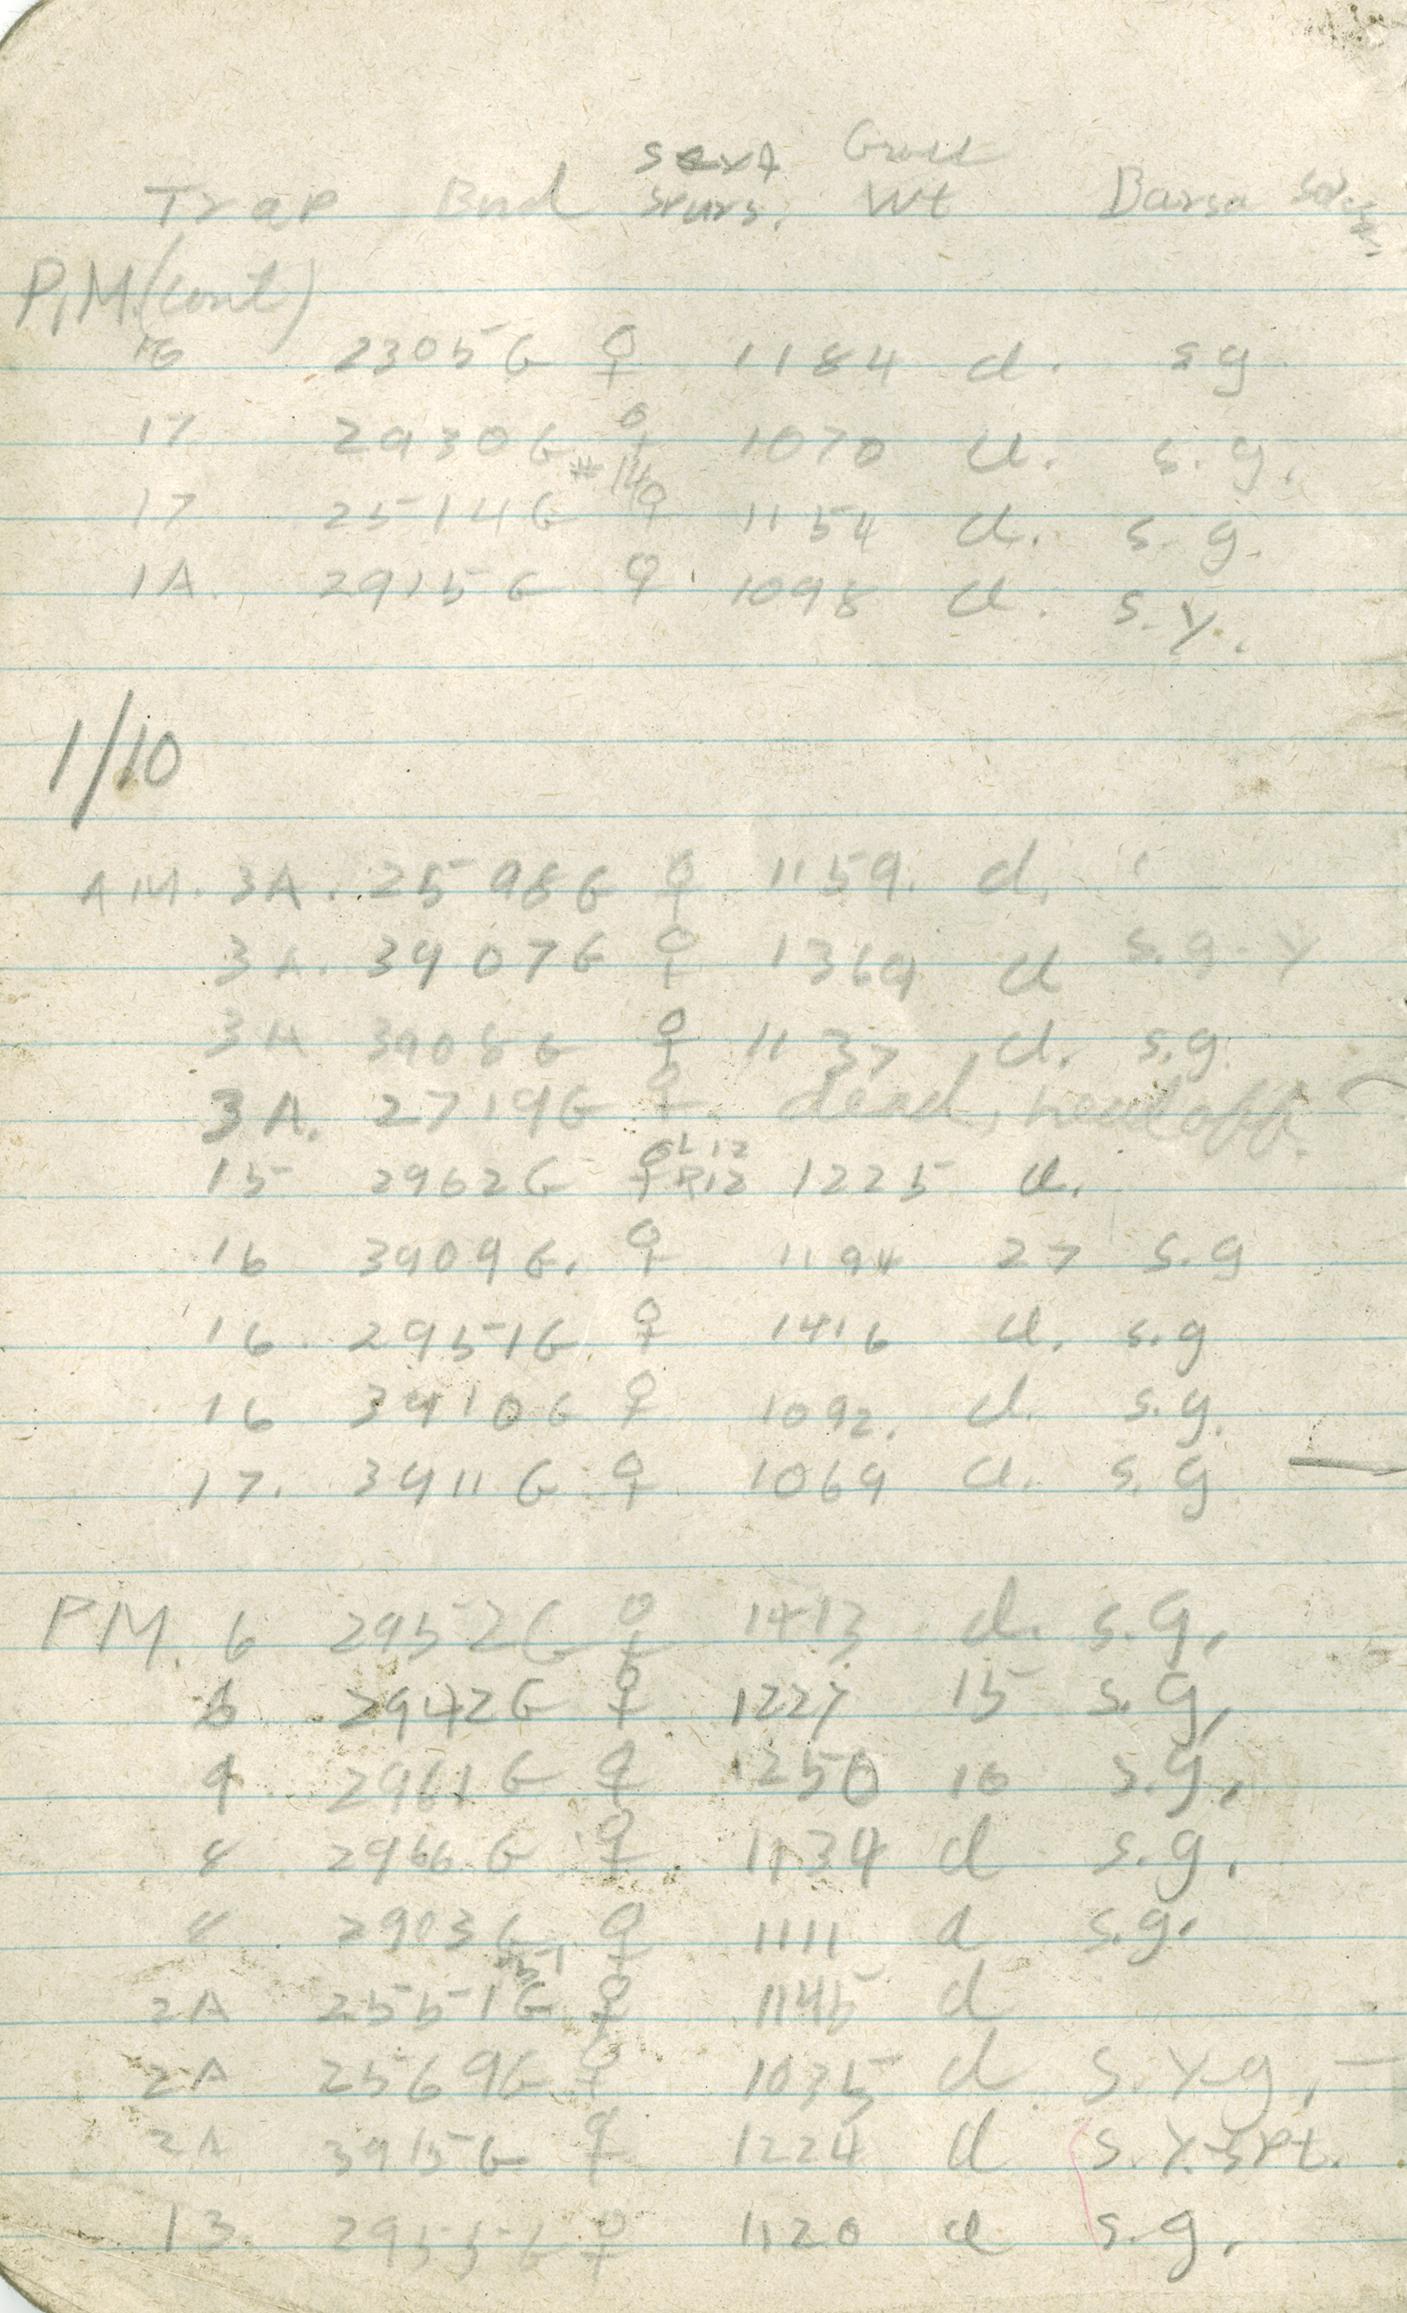 sex & Gross
Trap Band spurs. Wt Bursa
P.M. (cont)
16 2305G ♀ 1184 d. s g
17 2930G ♀ 1070 d. s. g.
#14
17 2514G ♀ 1154 d. s. g.
1A. 2915G ♀ 1098 d. s. y.
1/10
AM. 3A. 2598G ♀ 1159. d.
3A. 3907G ♀ 1369 d s. g. y
3A 3908G ♀ 1137 d. s. g.
3A. 2719G ♀ dead, head off.
L 12
15 2962G ♀ R12 1225 d.
16 3909G. ♀ 1194 27 s. g
16 2951G. ♀ 1416 d. s. g
16 3910G ♀ 1092. d. s. g.
17. 3911G ♀ 1069 d. s. g
PM. 6 2952G ♀ 1413 d. s. g.
6 2942G ♀ 1227 15 s. g.
9 2961G ♀ 1250 10 s. g.
8 2966G ♀ 1134 d s. g.
8 2903G ♀ 1111 d s. g.
2A 2551G ♀ 1145 d
2A 2569G ♀ 1035 d s. y-g. —
2A 3915G ♀ 1224 d s. y. spt.
13. 2955G ♀ 1120 d s. g.